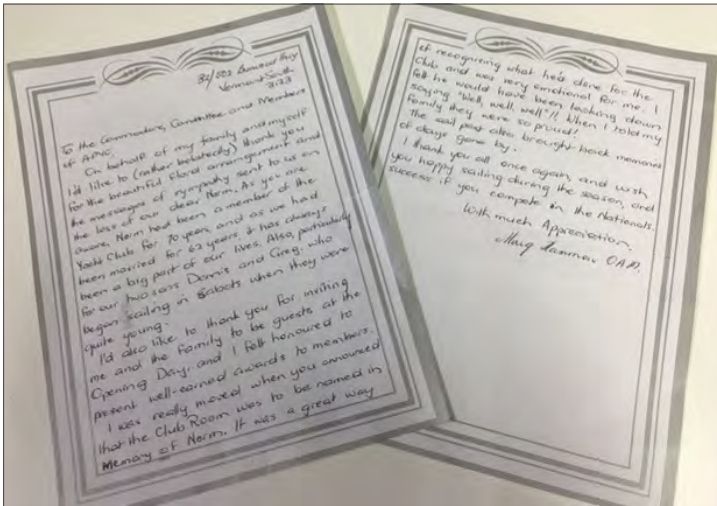 82/502 Burwood Hwy
Vermont South
3133
To the Commodore, Committee and Members
of APYC.
On behalf of my family and myself
I'd like to (rather belatedly) thank you
for the beautiful floral arrangement and
the messages of sympathy sent to us on
the loss of our dear Norm. As you are
aware, Norm had been a member of the
Yacht Club for 70 years, and as we had
been married for 62 years it has always
been a big part of our lives. Also, particularly
for our two sons Dennis and Greg, who
began sailing in Sabots when they were
quite young.
I'd also like to thank you for inviting
me and the family to be guests at the
Opening Day, and I felt honoured to
present well-earned awards to members.
I was really moved when you announced
that the Club Room was to be named in
Memory of Norm. It was a great way
of recognizing what he's done for the
Club and was very emotional for me. I
felt he would have been looking down
saying "Well, well, well"!! When I told my
family they were so proud!
The sail past also brought back memories
of days gone by.
I thank you all once again, and wish
you happy sailing during the season, and
success if you compete in the Nationals.
With much Appreciation,
OAM.